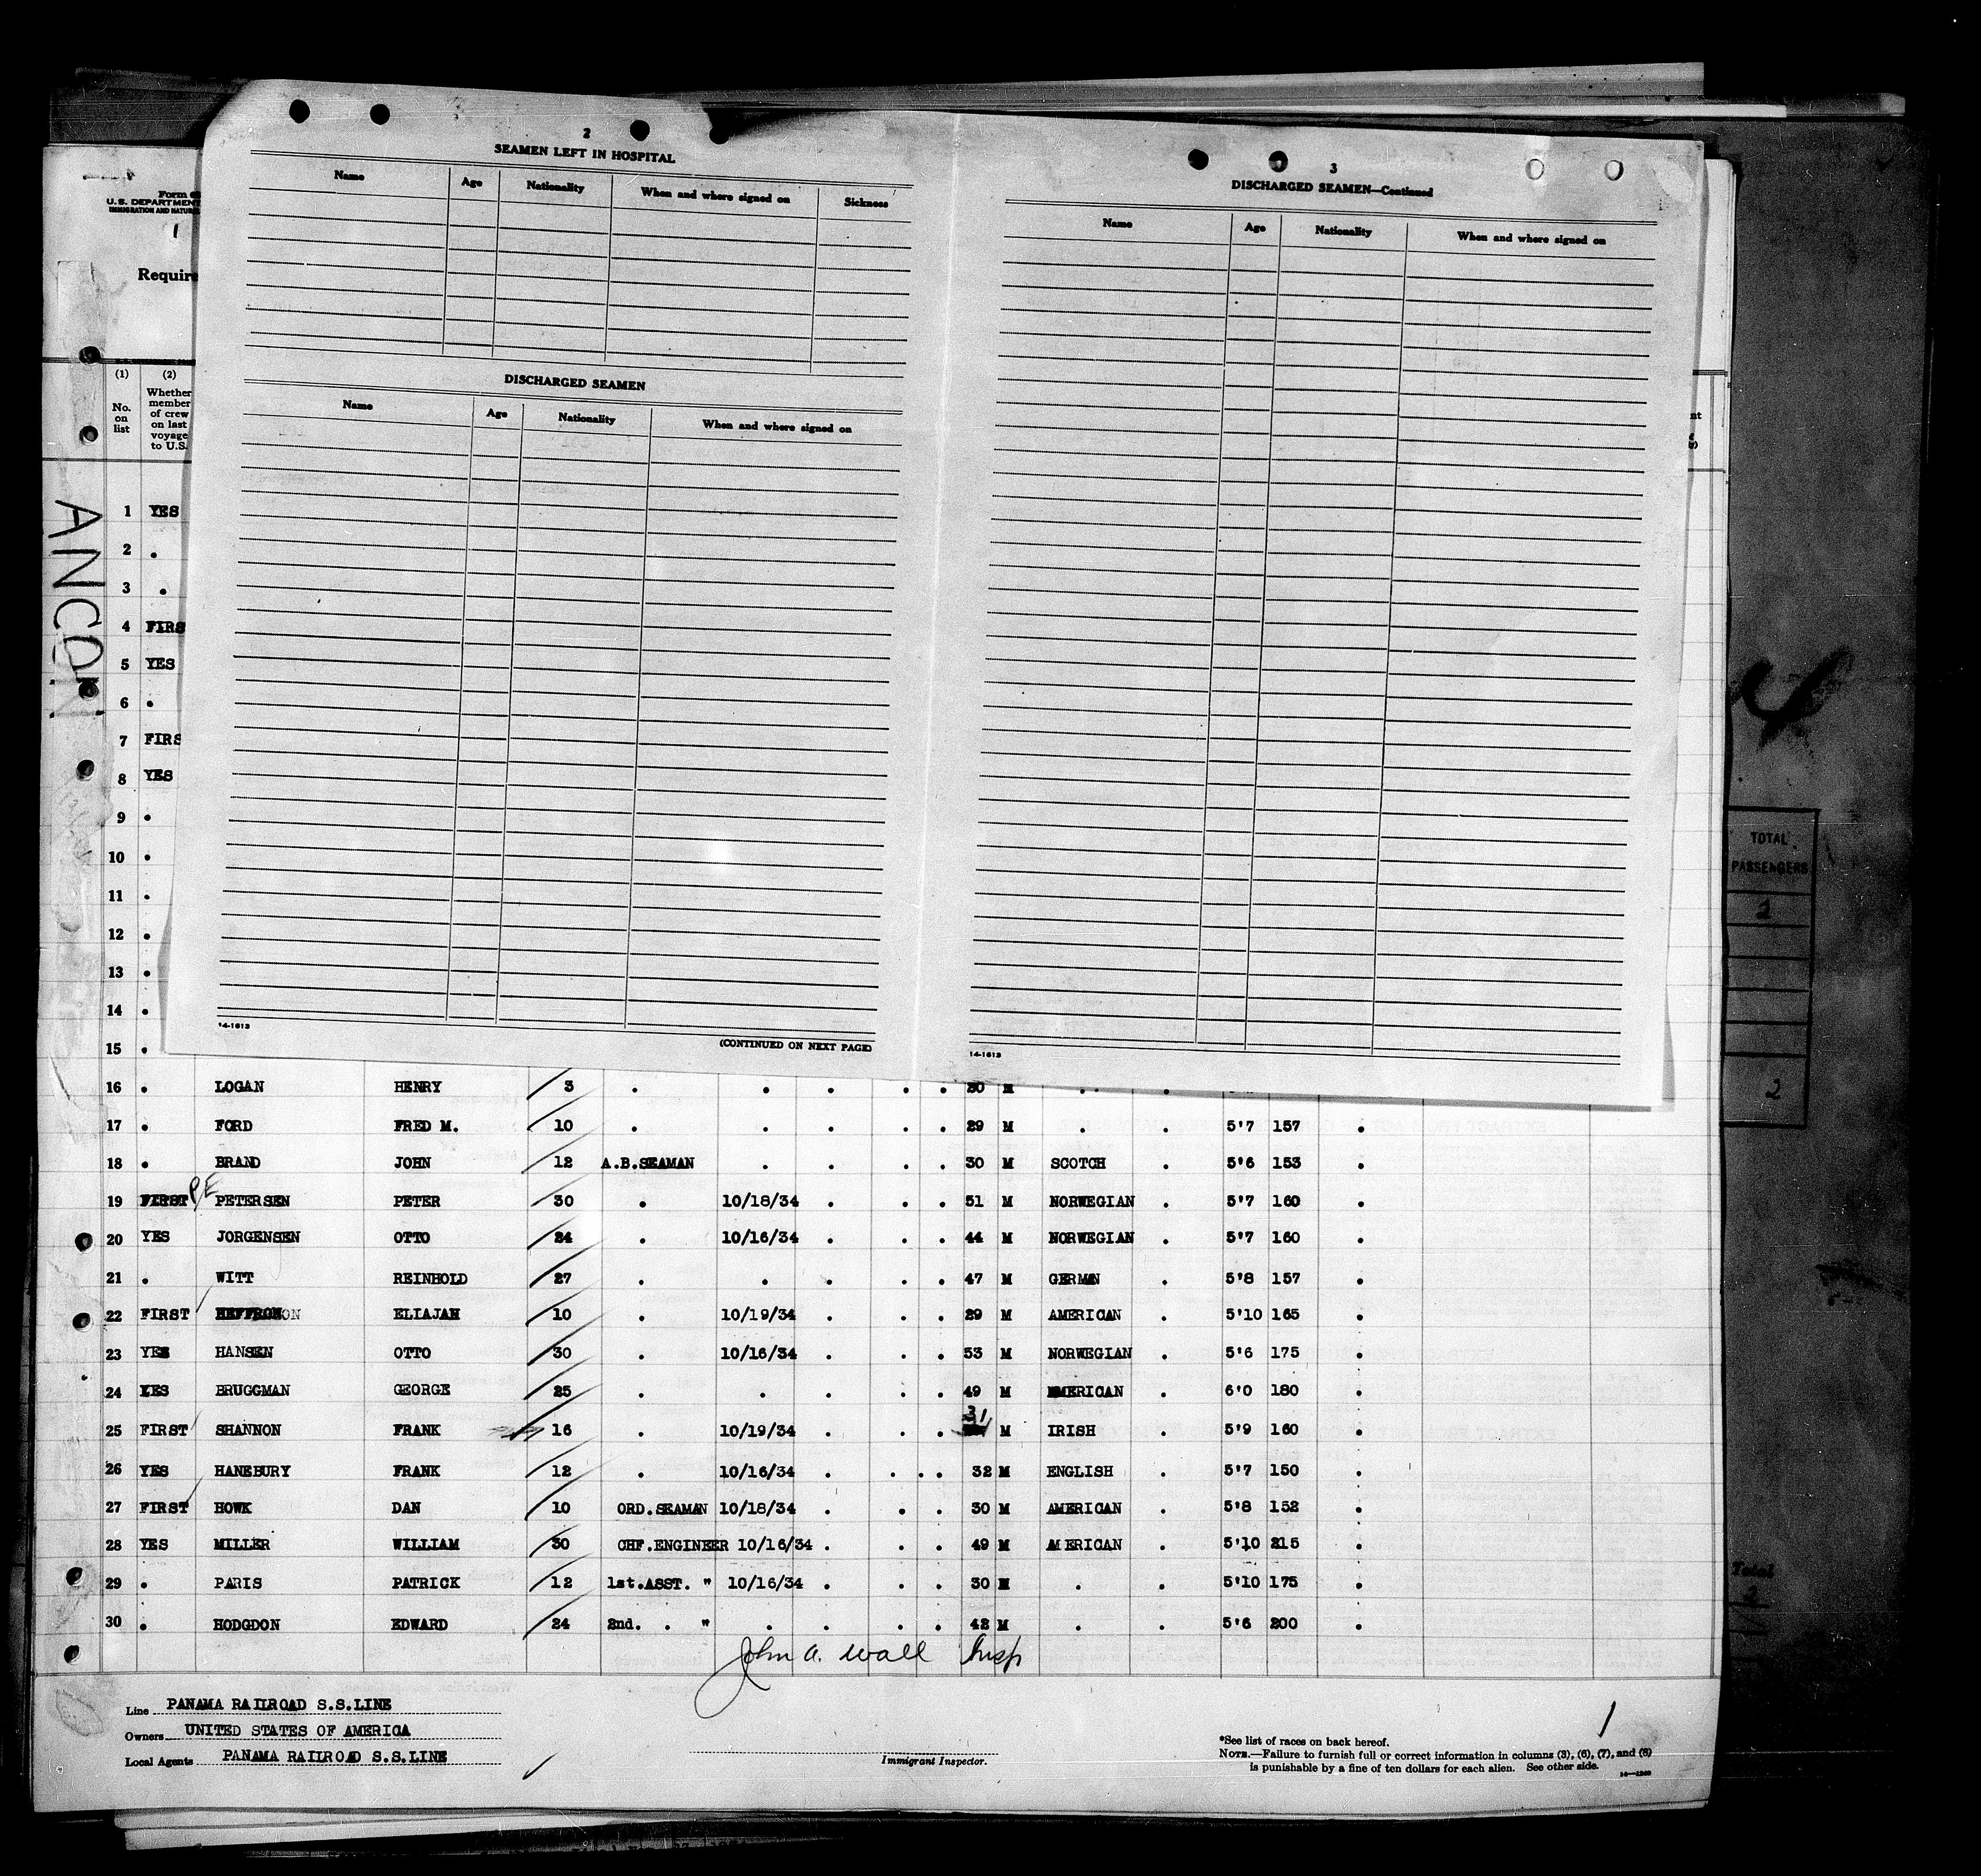 2
SEAMEN LEFT IN HOSPITAL
Name Age Nationality When and where signed on Sickness
DISCHARGED SEAMEN
Name Age Nationality When and where signed on
14-1613
(CONTINUED ON NEXT PAGE)
3
DISCHARGED SEAMEN—Continued
Name Age Nationality When and where signed on
14-1613
Form
U.S. DEPARTMENT
IMMIGRATION AND NATUR
1
Require
(1) (2)
No. on list
Whether member of crew on last voyage to U.S.
ANCON
1 YES
2 .
3 .
4 FIRS
5 YES
6 .
7 FIRS
8 YES
9 .
10 .
11 .
12 .
13 .
14 .
15 .
16 . LOGAN HENRY 3 . . . . . 30 M . .
17 . FORD FRED M. 10 . . . . . 29 M . . 5'7 157 .
18 . BRAND JOHN 12 A.B.SEAMAN . . . . 30 M SCOTCH . 5'6 153 .
19 FIRST PE PETERSEN PETER 30 . 10/18/34 . . . 51 M NORWEGIAN . 5'7 160 .
20 YES JORGENSEN OTTO 24 . 10/16/34 . . . 44 M NORWEGIAN . 5'7 160 .
21 . WITT REINHOLD 27 . . . . . 47 M GERMAN . 5'8 157 .
22 FIRST HEFFRON ON ELIAJAH 10 . 10/19/34 . . . 29 M AMERICAN . 5'10 165 .
23 YES HANSEN OTTO 30 . 10/16/34 . . . 53 M NORWEGIAN . 5'6 175 .
24 YES BRUGGMAN GEORGE 25 . . . . . 49 M AMERICAN . 6'0 180 .
25 FIRST SHANNON FRANK 16 . 10/19/34 . . . 31 M IRISH . 5'9 160 .
26 YES HANEBURY FRANK 12 . 10/16/34 . . . . 32 M ENGLISH . 5'7 150 .
27 FIRST HOWK DAN 10 ORD.SEAMAN 10/18/34 . . . 30 M AMERICAN . 5'8 152 .
28 YES MILLER WILLIAM 30 CHF.ENGINEER 10/16/34 . . . 49 M AMERICAN . 5'10 215 .
29 . PARIS PATRICK 12 1st.ASST. " 10/16/34 . . . 30 M . . 5'10 175 .
30 . HODGDON EDWARD 24 2nd. . " . . . . 42 M . . 5'6 200 .
John A. Wall Insp
Line PANAMA RAILROAD S.S.LINE
Owners UNITED STATES OF AMERICA
Local Agents PANAMA RAILROAD S.S.LINE
Immigrant Inspector.
1
*See list of races on back hereof.
NOTE.—Failure to furnish full or correct information in columns (3), (6), (7), and (8)
is punishable by a fine of ten dollars for each alien. See other side.
TOTAL
PASSENGERS
2
2
Total
2